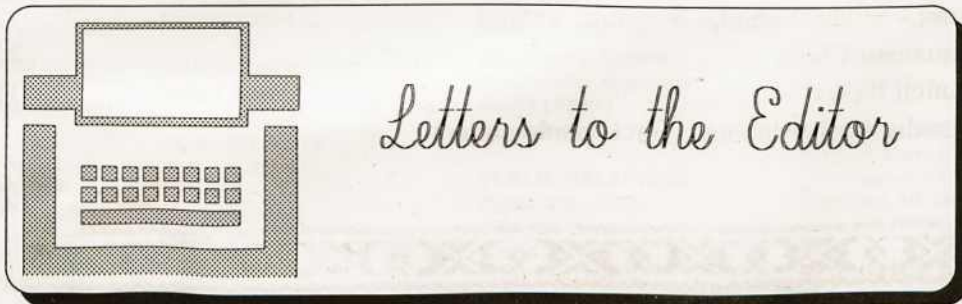 Letters to the Editor